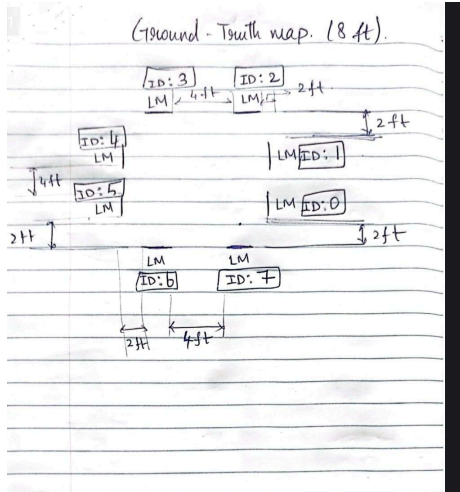 Ground-Truth map. (8 ft).
ID:3 ID:2
LM 4ft LM 2ft
2ft
ID:4
LM LM ID:1
4ft
ID:5
LM LM ID:0
2ft 2ft
LM LM
ID:6 ID:7
2ft 4ft